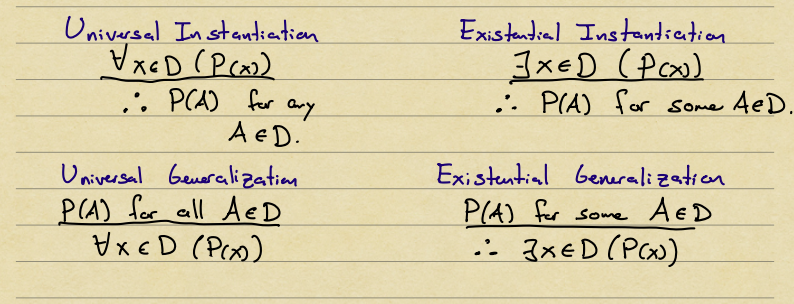 Universal Instantiation
∀x∈D (P(x))
∴ P(A) for any
A∈D.
Existential Instantiation
∃x∈D (P(x))
∴ P(A) for some A∈D.
Universal Generalization
P(A) for all A∈D
∀x∈D (P(x))
Existential Generalization
P(A) for some A∈D
∴ ∃x∈D (P(x))